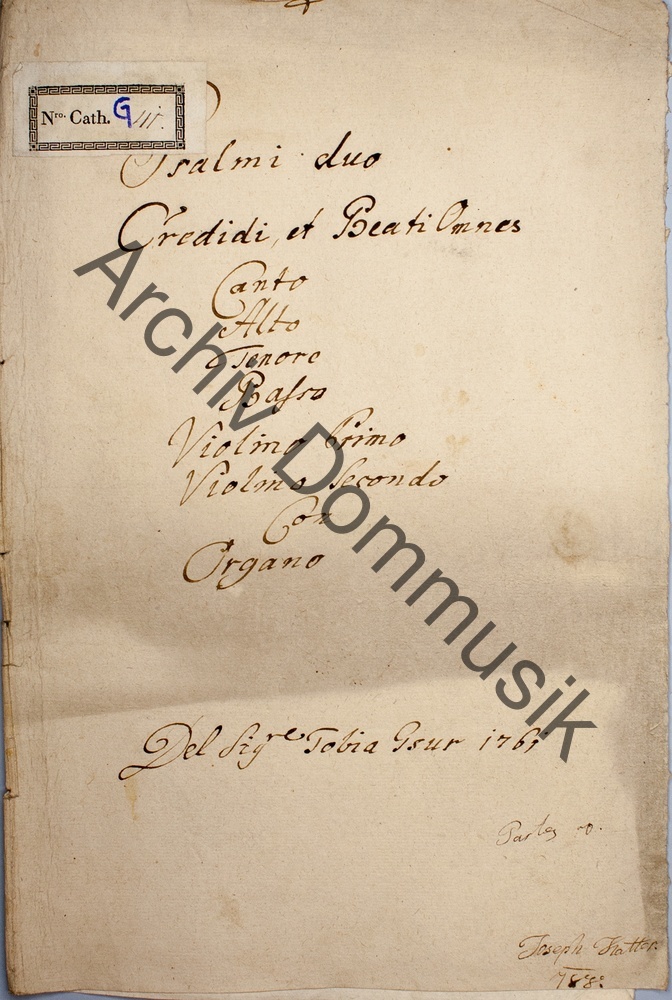 Nro. Cath. G
Psalmi duo
Credidi, et Beati Omnes
Canto
Alto
Tenore
Basso
Violino Primo
Violino Secondo
Con
Organo
Del Sigre Tobia Gsur 1761
Partes
Joseph
Archiv Dommusik